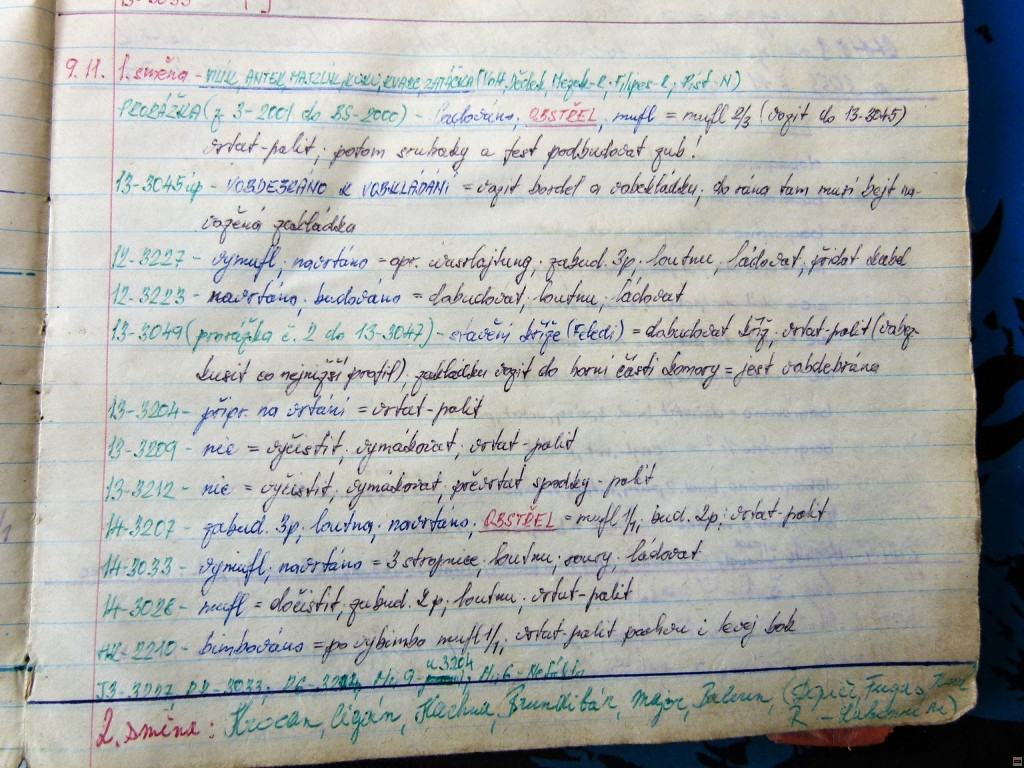 13-3033
9.11. 1. směna - ANTEK, MATZÚK, KUKU, KVAPIL, ZATÁČKA
PRORÁŽKA (z 3-2001 do BS-2000) - OBSTŘEL, mufl = mufl 2/3 (vozit do 13-3045)
vrtat-palit, potom srubaky a fest podbudovat zub!
13-3045 úp - = vozit bordel a; do rána tam musí bejt na-
vožená zakládka
12-3227 - vymufl, navrtáno = opr. wasrlajtung, zabud. 3p, loutnu, ládovat, přidat kabel
12-3223 - navrtáno, budováno = dobudovat, loutnu, ládovat
13-3049 (prorážka č. 2 do 13-3047) - stavění kříže = dobudovat kříž, vrtat-palit
co nejnižší profil), zakládku vozit do horní části komory = jest vobdebrána
13-3204 - připr. na vrtání = vrtat-palit
13-3209 - nic = vyčistit, vymáčkovat, vrtat-palit
13-3212 - nic = vyčistit, vymáčkovat, převrtat spodky-palit
14-3207 - zabud. 3p, loutna, navrtáno, OBSTŘEL = mufl 1/1, bud. 2p, vrtat-palit
14-3033 - vymufl, navrtáno = 3 stropnice, loutnu, roury, ládovat
14-3028 - mufl = dočistit, zabud. 2p, loutnu, vrtat-palit
2210 - bimbováno = po výbimbo mufl 1/1, vrtat-palit počvu i levej bok
J3-3227
2. směna: Krocan, Cigán, Kachna, Brundibár, Major, Balcun,